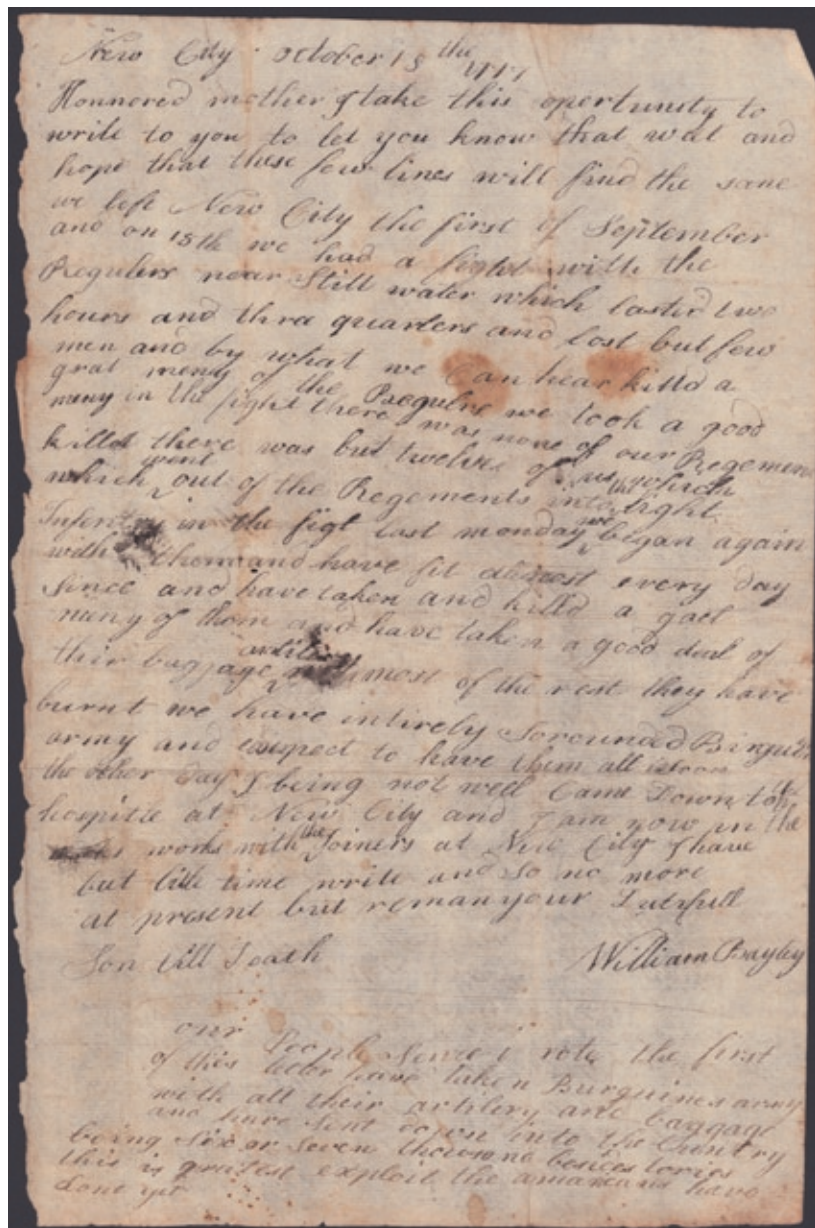 New City October 15 the 1777
Honnored mother I take this opertunity to
write to you to let you know that wal and
hope that these few lines will find the same
we left New City the first of September
and on 18th we had a fight with the
Regulers near Still water which lasted two
hours and three quarters and lost but few
men and by what we Can hear killd a
grat meny of the Regulrs we took a good
meny in the fight there was none of our Regement
killd there was but twelve of us which
which went out of the Regements into the light
Infentry in the figt last monday we began again
with them and have fit almost every day
Since and have taken and killd a gaet
meny of them and have taken a good deal of
their baggage most of the rest they have
burnt we have intirely Sorounded
army and expect to have them all soon
the other day I being not well Came Down to the
hospitle at New City and I am now in the
works with the Joiners at New City I have
but litle time write and so no more
at present but reman your
Son till Death William Bayley
our People Since i rote the first
of this leter have taken Burguines army
with all their artilery and baggage
and have Sent down into the Cuntry
being Six or Seven besides tories
this is gratest exploit the amaracans have
Done yit